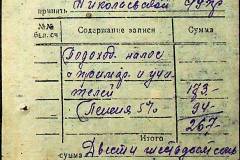 принять Николаевской
№№ бл.сч Содержание записи Сумма
Подоход. налог
с и учи-
телей 173-
Пенсия 5% 94-
Итого 267-
сумма Двести шестьдесят семь